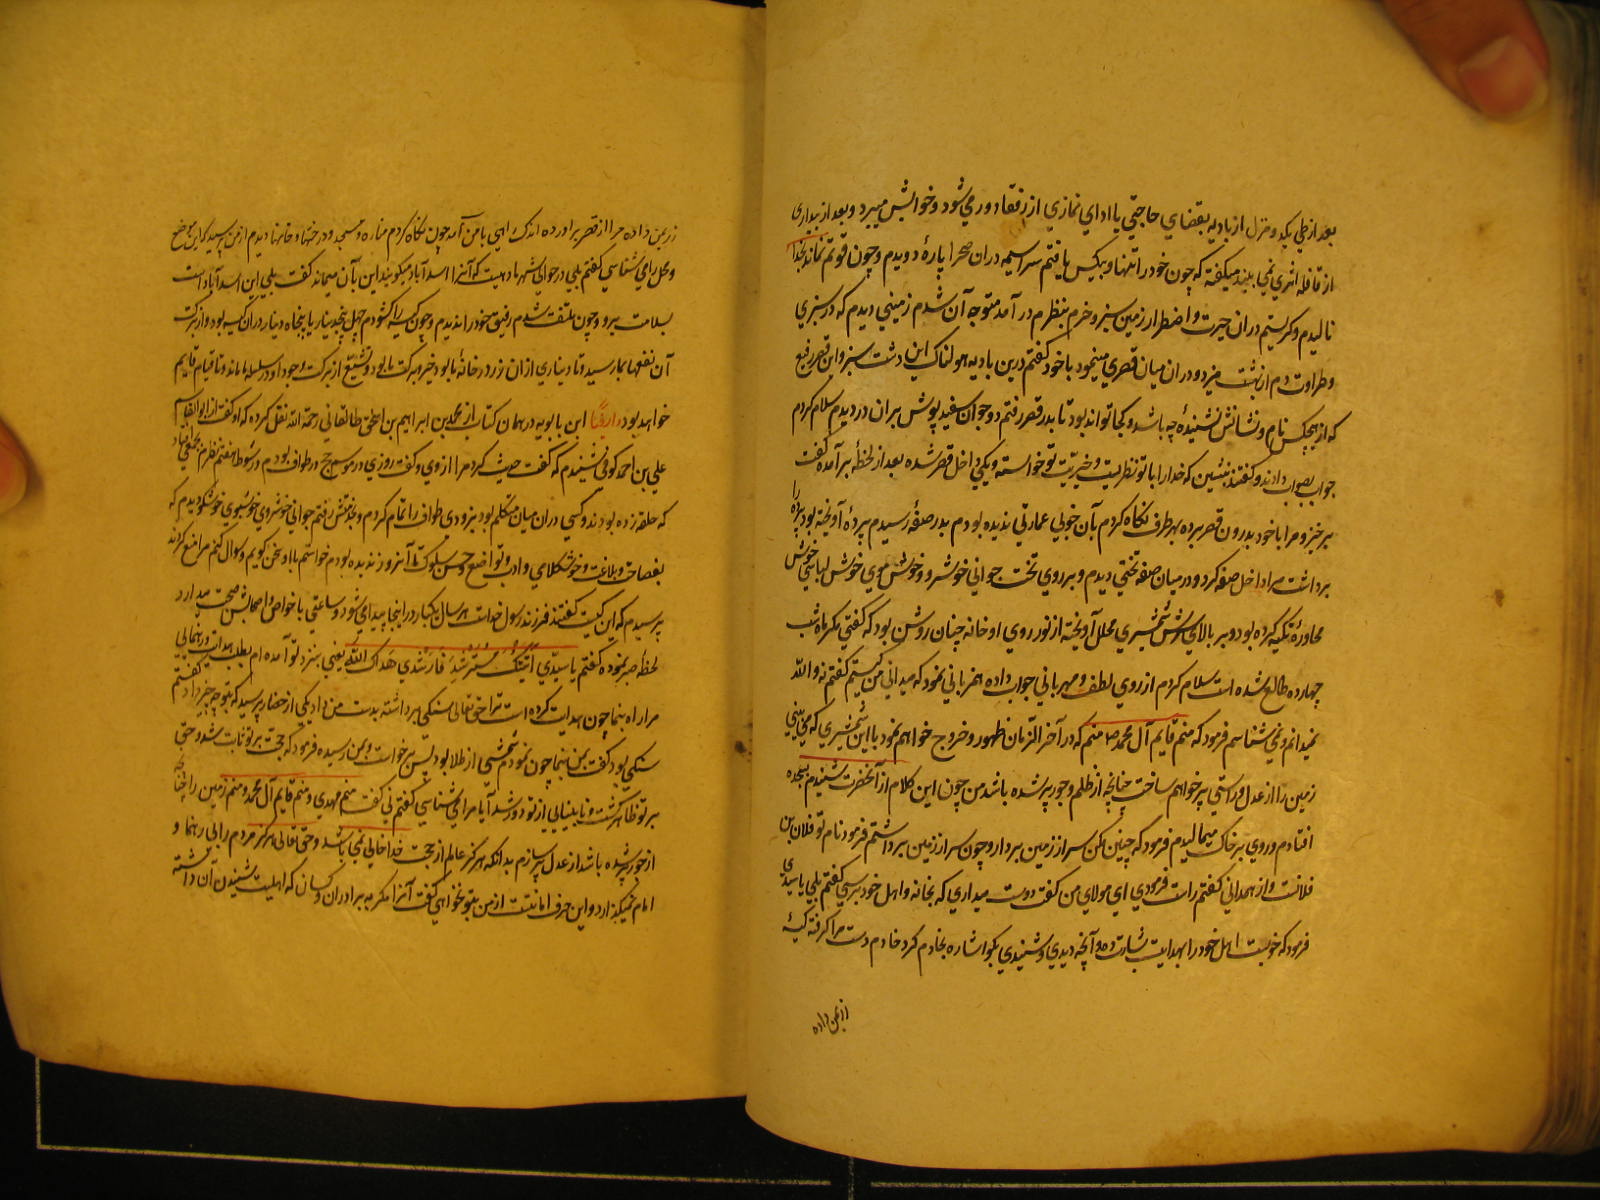 بعد از طی یکدو منزل از بادیه بقضای حاجتی یا ادای نمازی از رفقا دور می شود و خوابش میبرد و بعد از بیداری
از قافله اثری نمی بیند میگفته که چون خود را تنها و بیکس یافتم سراسیمه دران صحرا پارهٔ دویدم و چون قوتم نماند بخدا
نالیدم و گریستم دران حیرت و اضطرار زمین سبز و خرم بنظرم در آمد متوجه آن شدم زمینی دیدم که در سبزی
و طراوت دم از بهشت میزد و دران میان قصری مینمود با خود گفتم درین بادیه هولناک این دشت سبز و این قصر رفیع
که از هیچکس نام و نشانش نشنیدهٔ چه باشد و کجا تواند بود تا بدر قصر رفتم دو جوان سفید پوش بران در دیدم سلام کردم
جواب بصواب دادند و گفتند بنشین که خدا را با تو نظریست و خیریت تو خواسته و یکی داخل قصر شده بعد از لحظهٔ بر آمده گفت
برخیز و مرا با خود بدرون قصر برده بهر طرف نگاه کردم بآن خوبی عمارتی ندیده بودم بدر صفهٔ رسیدم پردهٔ آویخته بود پرده را
برداشت مرا داخل صفه کرد و در میان صفه تختی دیدم و بر روی تخت جوانی خوشرو و خوش موی خوش لباسی خوش
محاورهٔ تکیه کرده بود و بر بالای سرش شمشیری محلل آویخته از نور روی او خانه چنان روشن بود که گفتی مگر ماه شب
چهارده طالع شده است سلام کردم از روی لطف و مهربانی جواب داده همزبانی نمود که میدانی من کیستم گفتم نه والله
نمیدانم و نمی شناسم فرمود که منم قایم آل محمد ص منم که در آخر الزمان ظهور و خروج خواهم نمود با این شمشیری که می بینی
زمین را از عدل و راستی پر خواهم ساخت چنانچه از ظلم و جور پر شده باشد من چون این کلام از آنحضرت شنیدم بسجده
افتادم و روی بر خاک میمالیدم فرمود که چنین مکن سر از زمین بردار و چون سر از زمین برداشتم فرمود نام تو فلان بن
فلانست و از همدانی گفتم راست فرمودی ای مولای من گفت دوست میداری که بخانه و اهل خود برسی گفتم بلی یا سیدی
فرمود که خوبست اهل خود را بهدایت بشارت ده و آنچه دیدی و شنیدی بگو اشاره بخادم کرد خادم دست مرا گرفته کیسهٔ
زر بمن داده
زر بمن داده مرا از قصر برآورده اندک راهی با من آمد چون نگاه کردم مناره و مسجد و درختها و خانها دیدم از من پرسید که این موضع
و محل را می شناسی گفتم بلی در حوالی شهر ما دهیست که آنرا اسدآباد میگویند این بآن میماند گفت بلی این اسدآباد است
بسلامت برو و چون ملتفت شدم رفیق خود را ندیدم و چون کیسه را گشودم چهل پنجدینار یا پنجاه دینار دران کیسه بود و از برکت
آن نفعها بما رسید و تا دیناری از ان زر در خانهٔ ما بود خیر و برکت با ما بود و تشیع از برکت وجود او در سلسله ما ماند و تا قیام قایم
خواهد بود و ایضًا ابن بابویه در همان کتاب از محمد بن ابراهیم بن اسحق طالقانی رحمة الله نقل کرده که او گفت از ابو القاسم
علی بن احمد کوفی شنیدم که گفت حدیث کرد مرا ازدی و گفت روزی در موسم حج در طواف بودم در شوط هفتم نظرم بجمعی افتاد
که حلقه زده بودند و کسی دران میان متکلم بود بزودی طواف را تمام کردم و بخدمتش رفتم جوانی خوشروی خوشبوی خوشگو دیدم که
بفصاحت و بلاغت و خوشکلامی و ادب و تواضع و حسن سلوک تا آنروز ندیده بودم خواستم با او سخن گویم و سوال کنم مرا منع کردند
پرسیدم که این کیست گفتند فرزند رسول خداست هر سال یکبار در اینجا پیدا می شود و ساعتی با خواص و اصحابش صحبت میدارد
لحظهٔ صبر نموده گفتم یا سیدی أتیتک مسترشدا فارشدنی هداک الله یعنی بنزد تو آمده ام بطلب هدایت و رهنمایی
مرا راه بنما چون هدایت کرده است ترا حق تعالی سنکی برداشته بدست من داد یکی از حضار پرسید که بتو چه چیز داد گفتم
سنکی بود گفت بمن بنما چون نمودم شمشی از طلا بود پس برخواست و بمن رسیده فرمود که حجت بر تو ثابت شد و حق
بر تو ظاهر گشت و نابینایی از تو دور شد آیا مرا می شناسی گفتم نی گفت منم مهدی و منم قایم آل محمد و منم زمین را چنانچه
از جور پر شده باشد از عدل پر سازم بدانکه هرگز عالم از حجت خدا خالی نمی باشد و حق تعالی هرگز مردم را بی رهنما و
امام نمیگذارد و این حرف امانتست از من بتو نخواهی گفت آنرا مگر به برادران و کسان که اهلیت شنیدن آن داشته